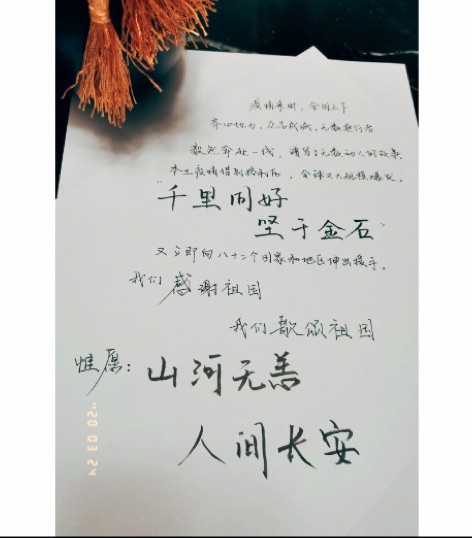 疫情来时，全国上下
齐心协力，众志成城，无数逆行者
毅然奔赴一线，谱写了无数动人的故事
本土疫情得到控制后，全球又大规模爆发。
“千里同好
坚于金石”
又立即向八十二个国家和地区伸出援手。
我们感谢祖国
我们歌颂祖国
惟愿：山河无恙
人间长安
'20 03 24